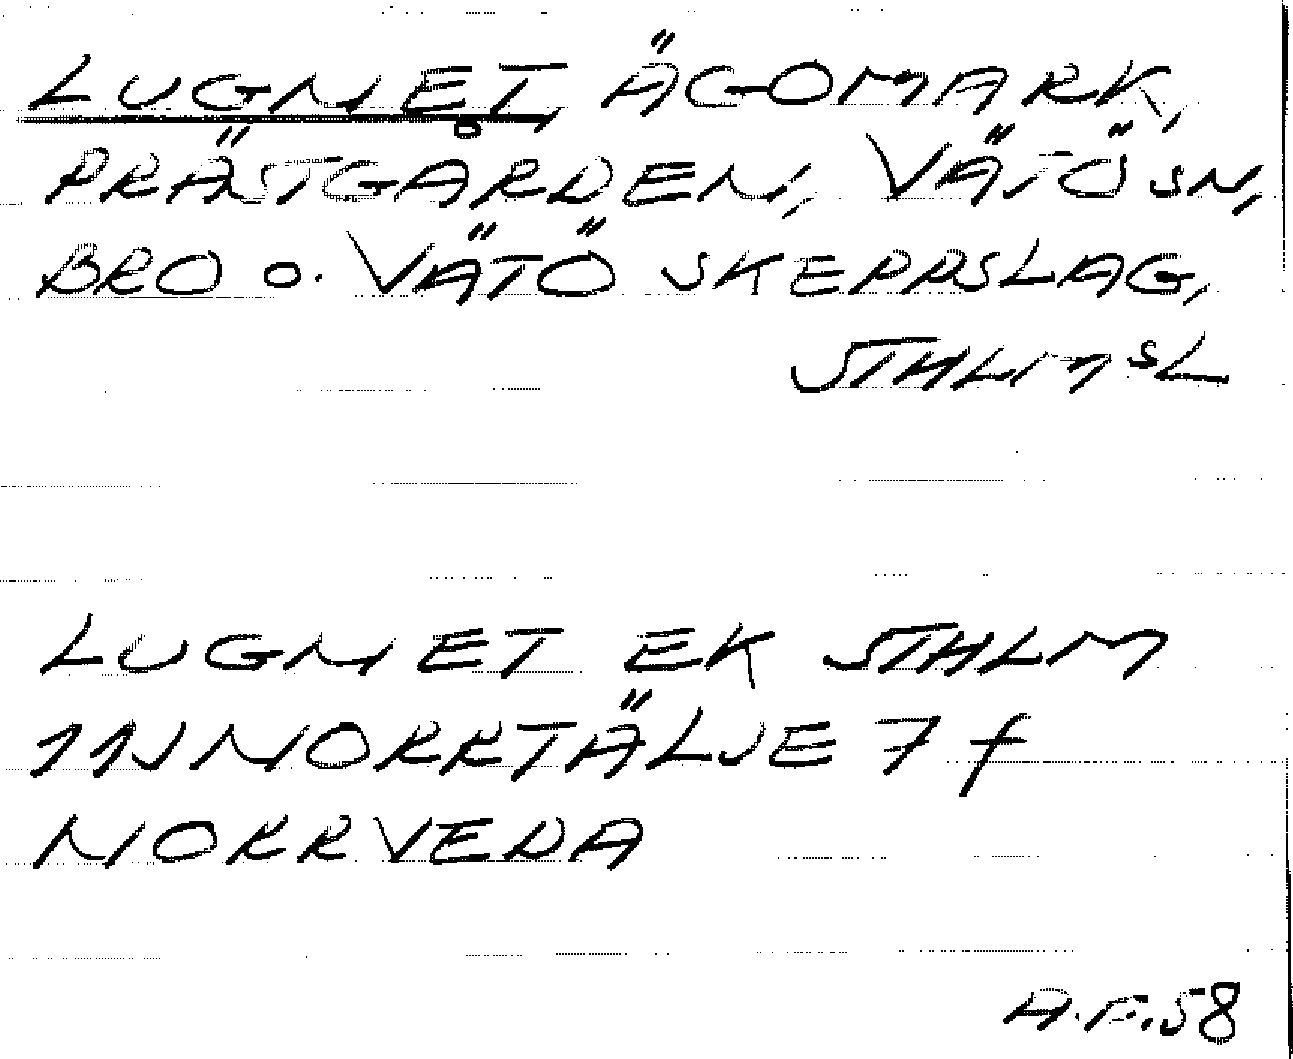 LUGNET, ÄGOMARK,
PRÄSTGÅRDEN, VÄTÖ SN,
BRO O. VÄTÖ SKEPPSLAG,
STHLMSL
LUGNET EK STHLM
11J NORRTÄLJE 7 f
NORRVEDA
A.F.58